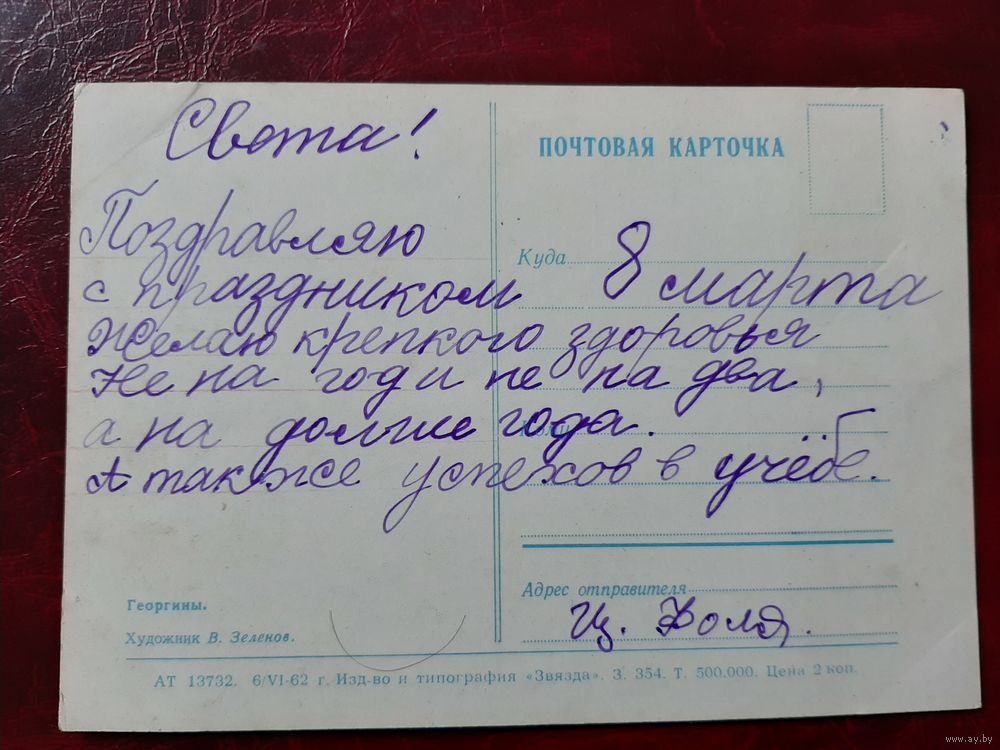 Света!
ПОЧТОВАЯ КАРТОЧКА
Поздравляю
Куда
с праздником 8 марта
Желаю крепкого здоровья
Не на год и не на два,
а на долгие года.
А также успехов в учёбе.
Адрес отправителя
Коля.
Георгины.
Художник В. Зеленов.
АТ 13732. 6/VI-62 г. Изд-во и типография «Звязда». З. 354. Т. 500.000. Цена 2 коп.
www.ay.by